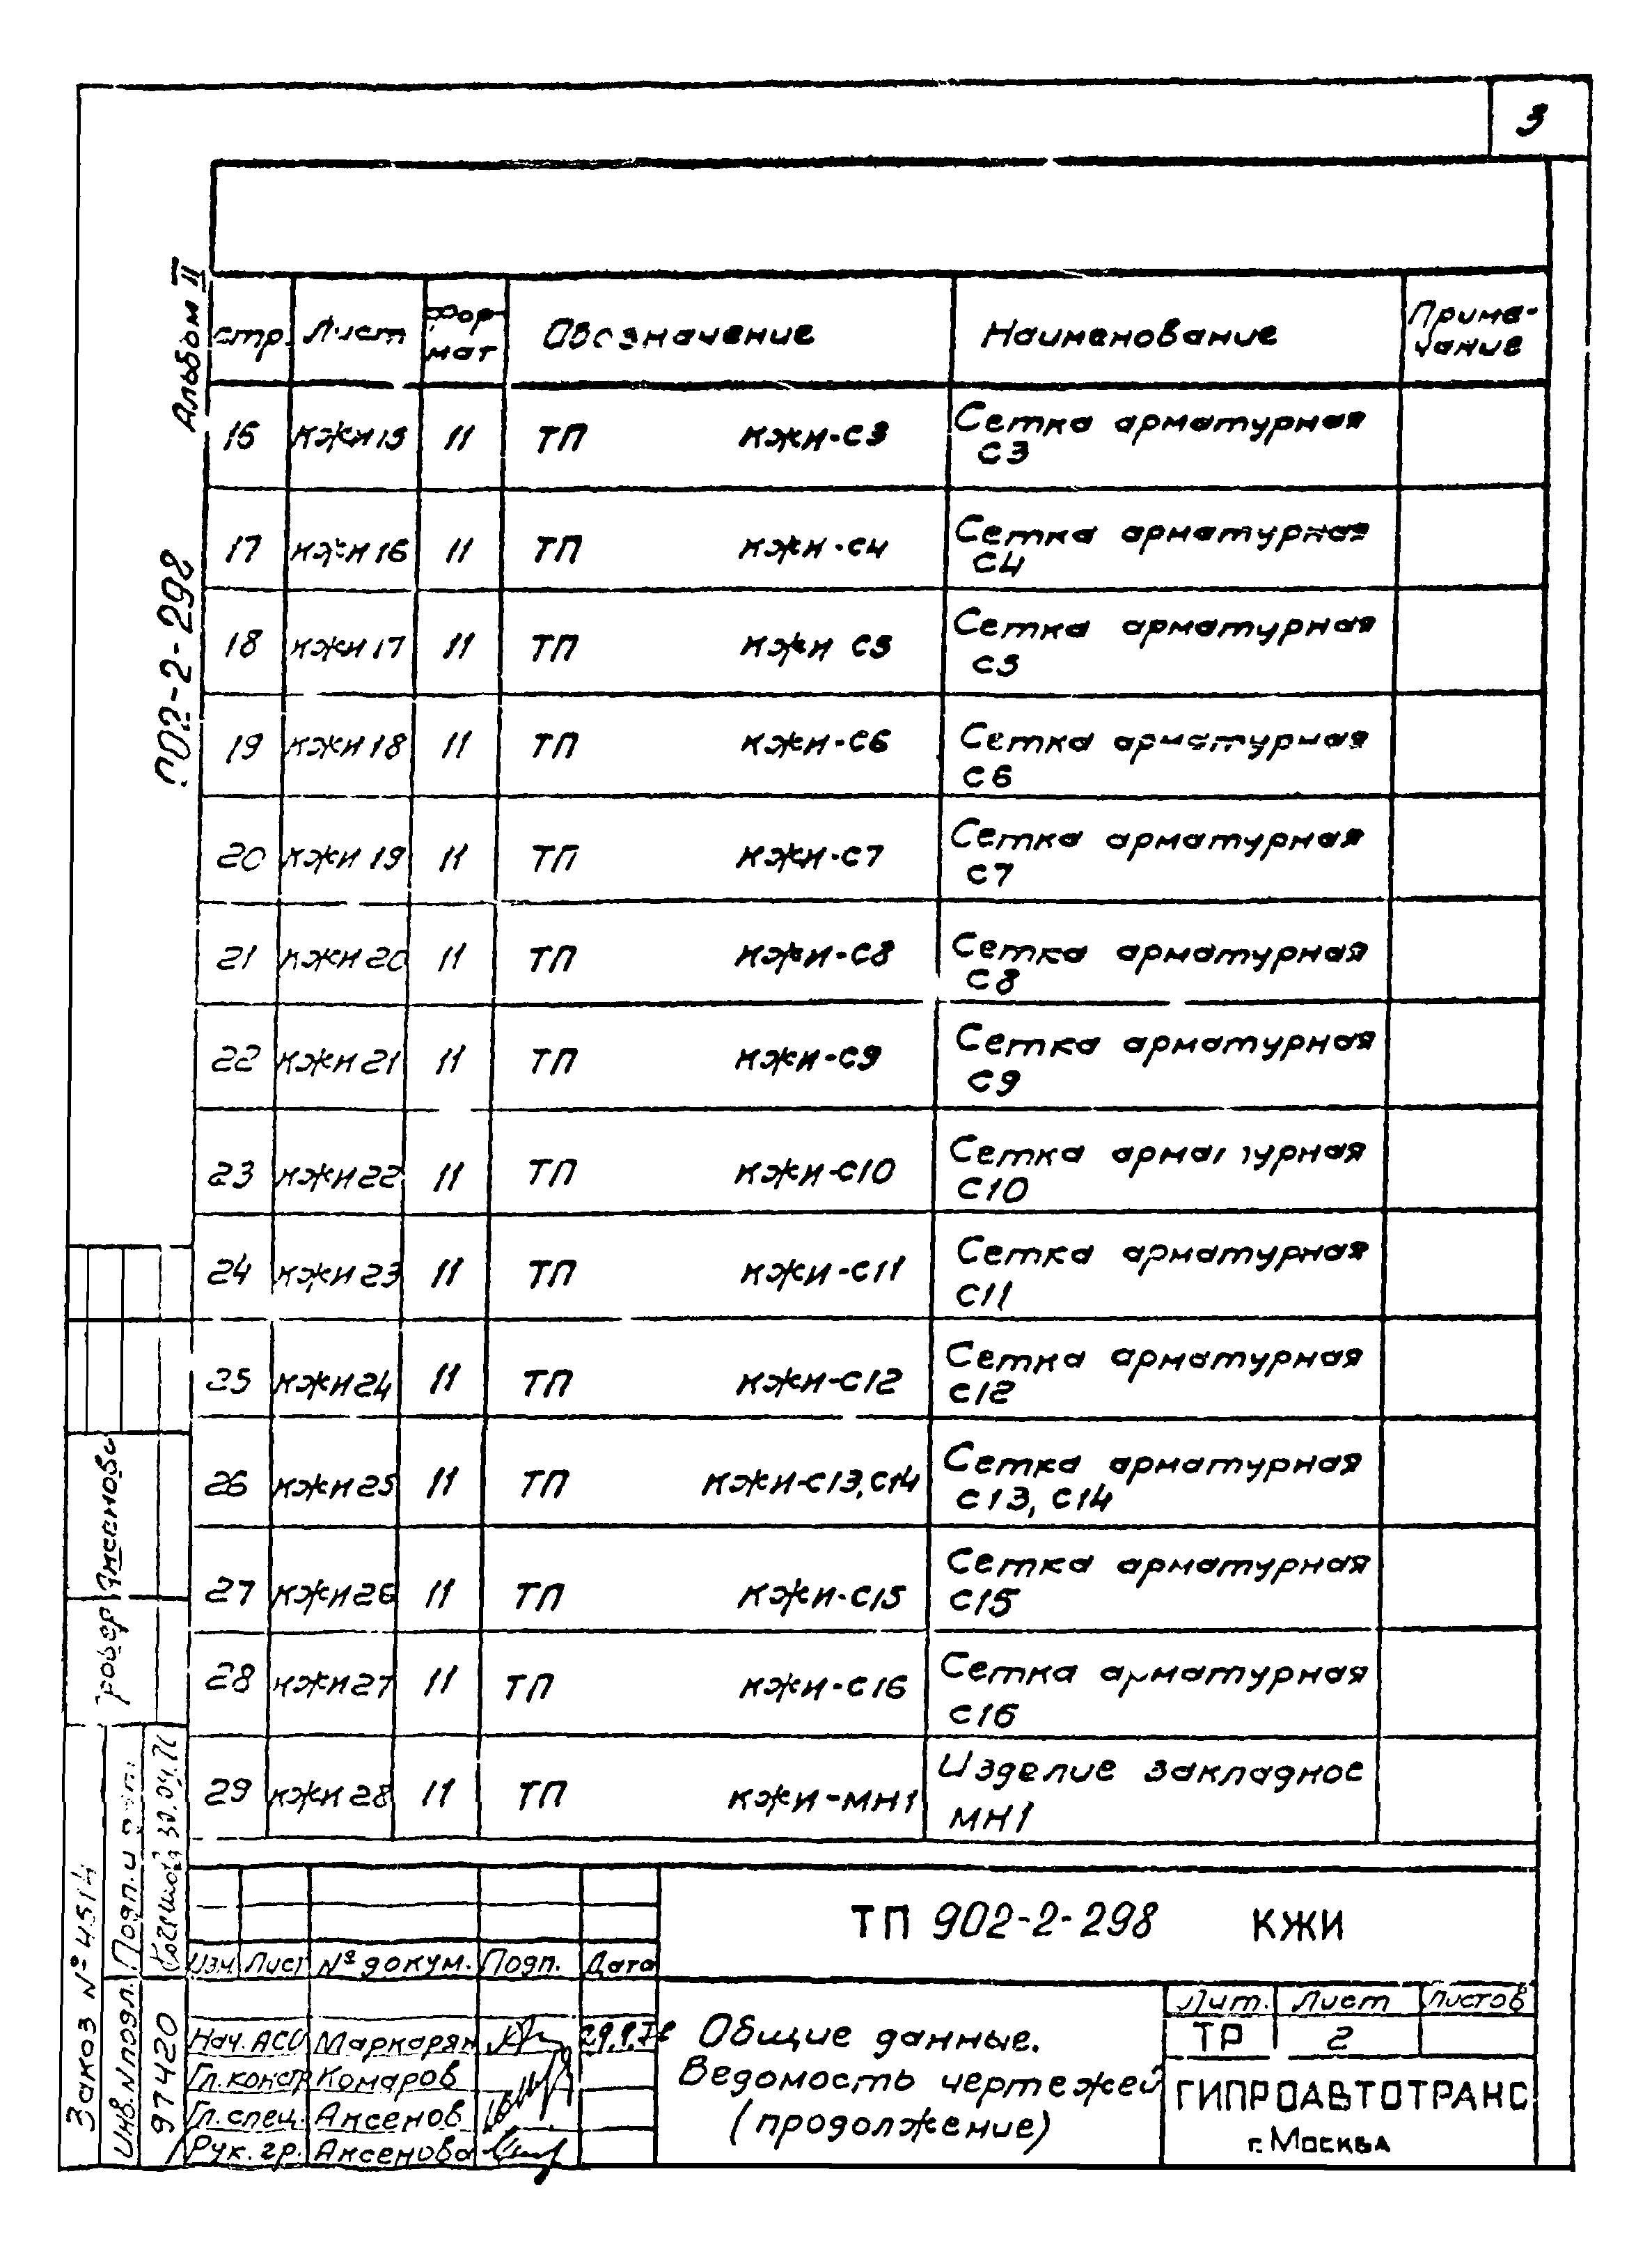 3
Альбом II
902-2-298
стр. Лист Фор-мат Обозначение Наименование Приме-чание
16 КЖИ15 11 ТП КЖИ-С3 Сетка арматурная С3
17 КЖИ16 11 ТП КЖИ-С4 Сетка арматурная С4
18 КЖИ17 11 ТП КЖИ С5 Сетка арматурная С5
19 КЖИ18 11 ТП КЖИ-С6 Сетка арматурная С6
20 КЖИ19 11 ТП КЖИ-С7 Сетка арматурная С7
21 КЖИ20 11 ТП КЖИ-С8 Сетка арматурная С8
22 КЖИ21 11 ТП КЖИ-С9 Сетка арматурная С9
23 КЖИ22 11 ТП КЖИ-С10 Сетка арматурная С10
24 КЖИ23 11 ТП КЖИ-С11 Сетка арматурная С11
25 КЖИ24 11 ТП КЖИ-С12 Сетка арматурная С12
26 КЖИ25 11 ТП КЖИ-С13,С14 Сетка арматурная С13, С14
27 КЖИ26 11 ТП КЖИ-С15 Сетка арматурная С15
28 КЖИ27 11 ТП КЖИ-С16 Сетка арматурная С16
29 КЖИ28 11 ТП КЖИ-МН1 Изделие закладное МН1
ТП 902-2-298 КЖИ
Изм Лист № докум. Подп. Дата
Нач. АСО Маркарян
Гл. констр Комаров
Гл. спец. Аксенов
Рук. гр. Аксенова
Общие данные.
Ведомость чертежей
(продолжение)
Лит. Лист Листов
ТР 2
ГИПРОАВТОТРАНС
г. Москва
Заказ № 4514
Инв. N подл. Подп. и
97420